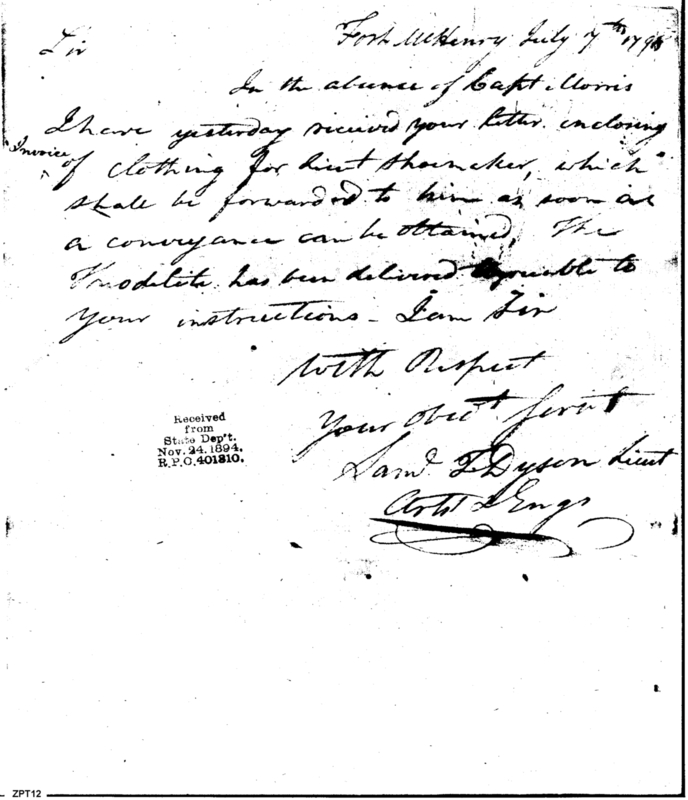 Fort McHenry July 7th 179
Sir
In the absence of Capt Morris
I have yesterday received your letter enclosing
Invoice
of clothing for Lieut Shoemaker, which
shall be forwarded to him as soon as
a conveyance can be obtained, The
has been delivered agreeable to
your instructions - I am Sir
With Respect
Your Obedt Servt
Saml T Dyson Lieut
Arts & Engs
Received
from
State Dep't.
Nov. 24. 1894.
R.P.O. 401310.
ZPT12